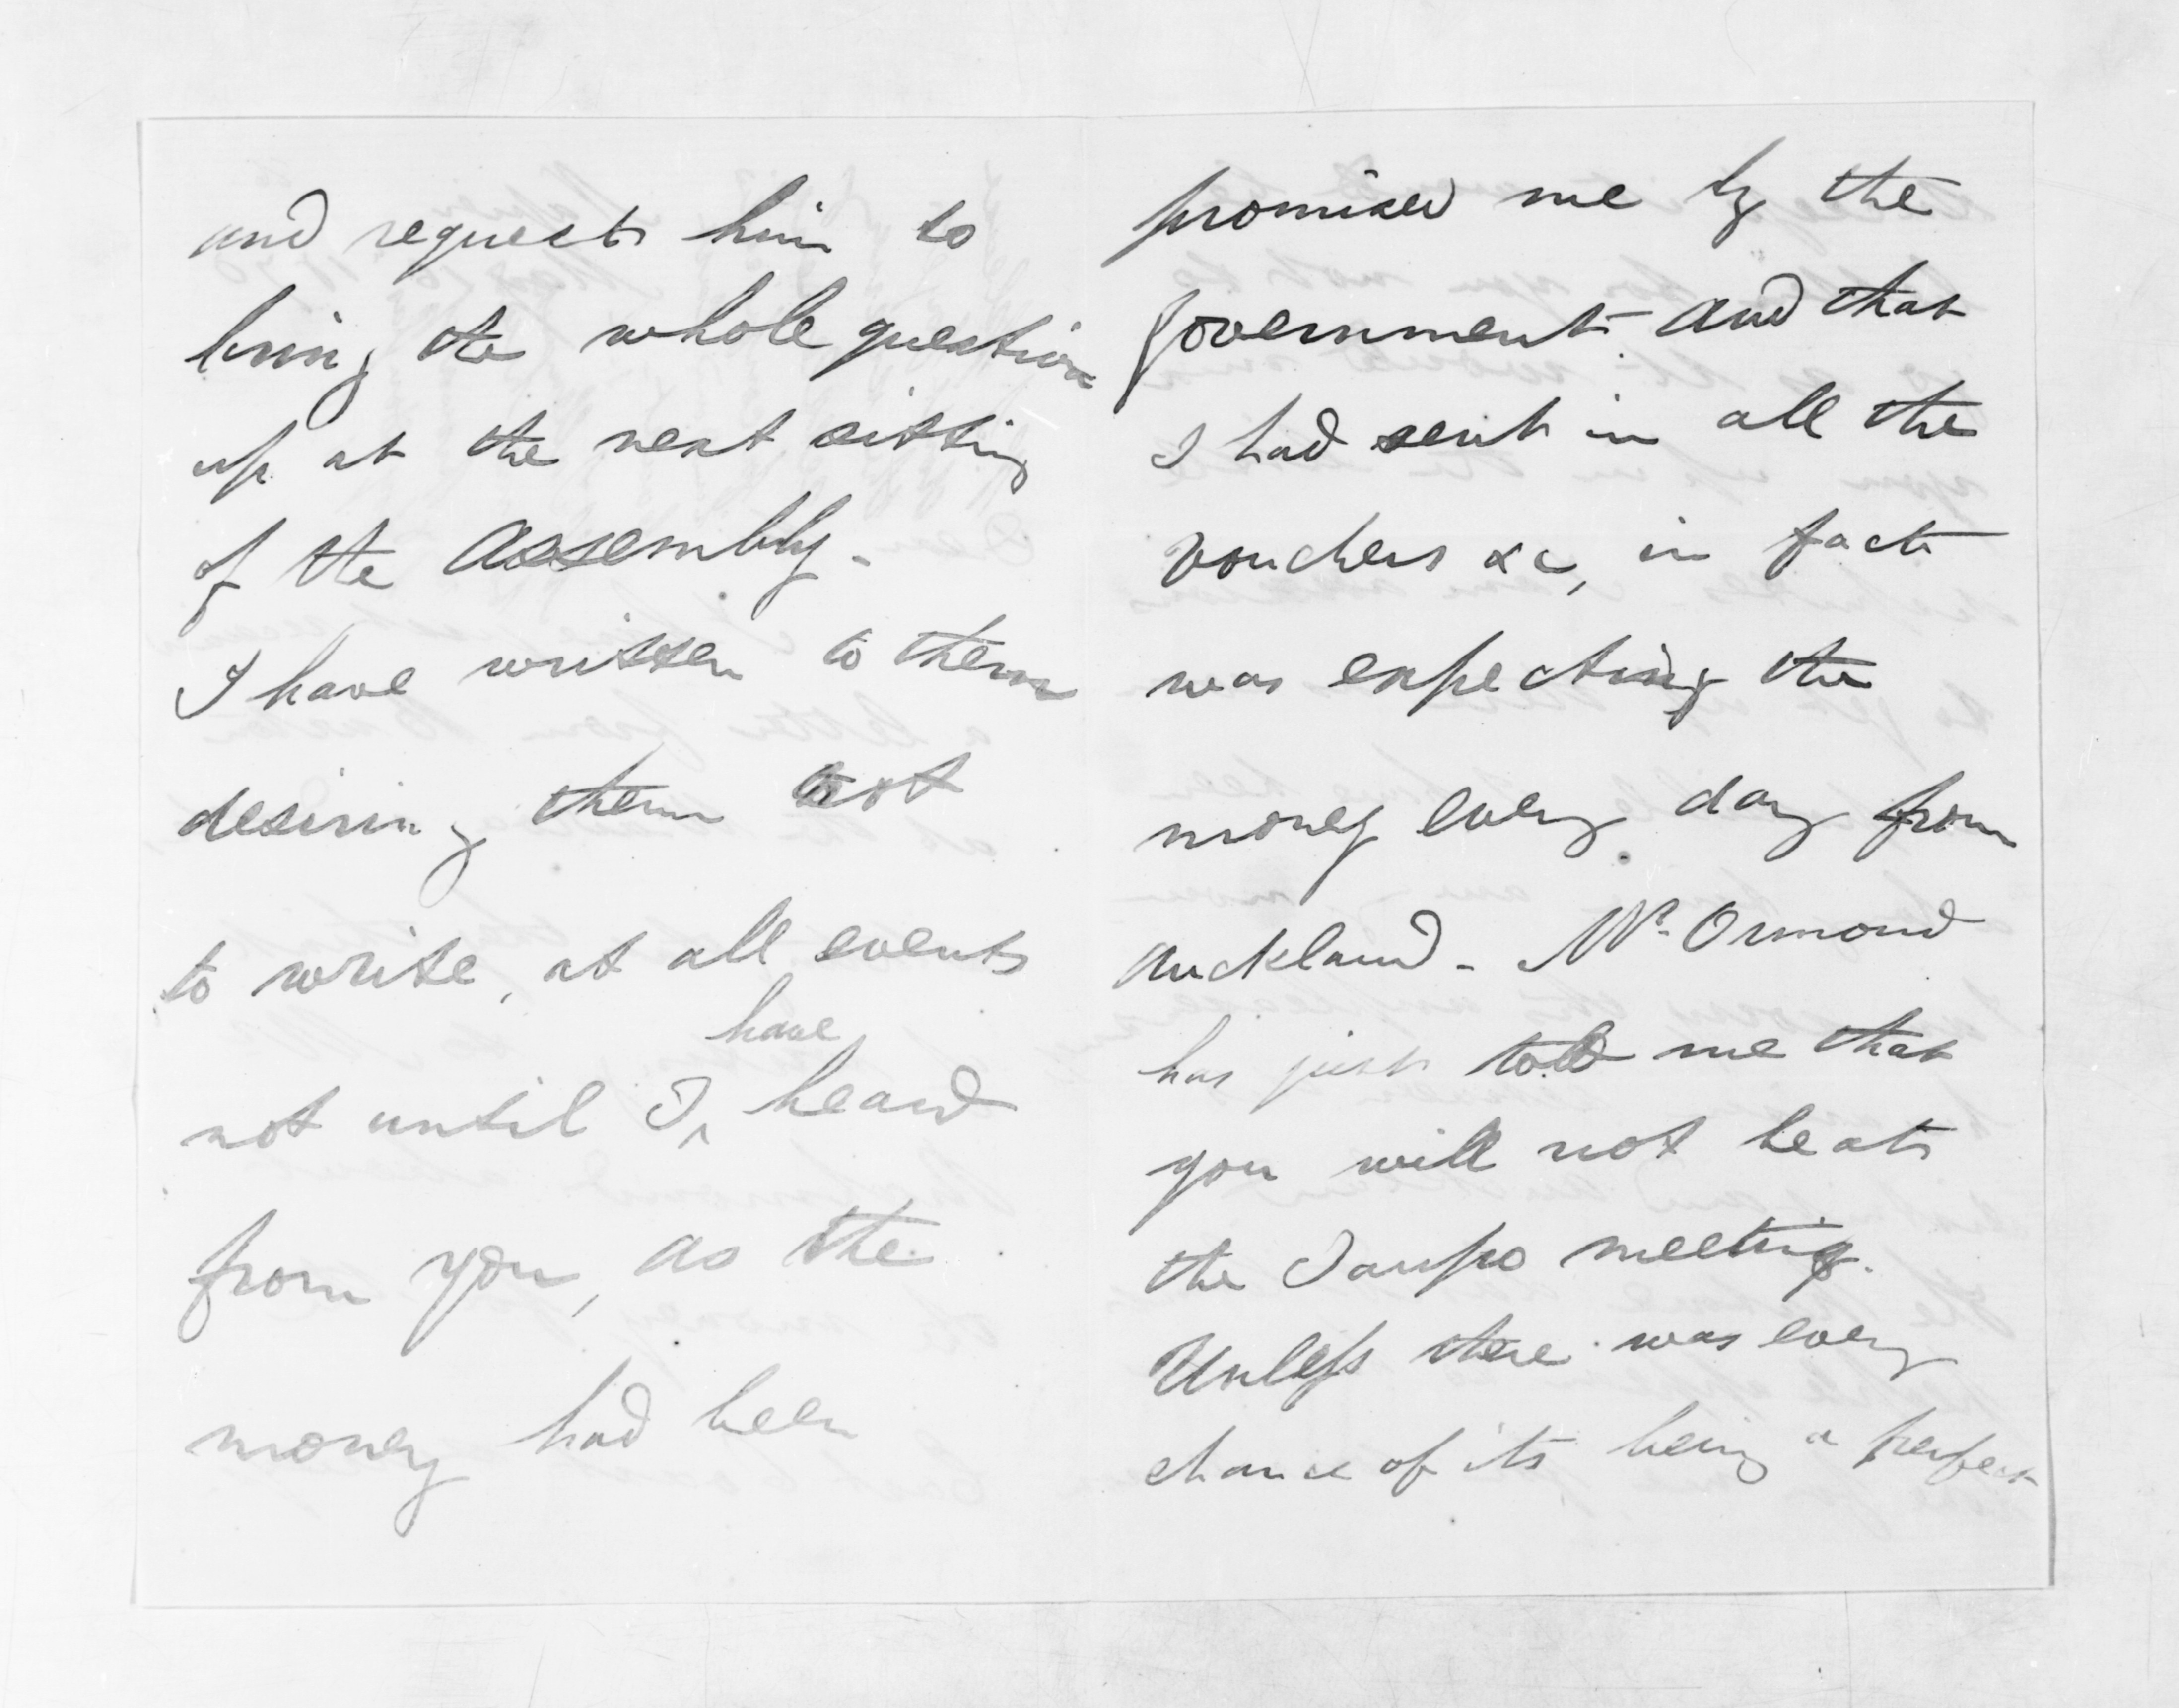 and request him to
bring the whole question
up at the next sitting
of the Assembly.
I have written to them
desiring them not
to write, at all events
have
not until I ^ heard
from you, as the
money had been
promised me by the
Government and that
I had sent in all the
vouchers &c, in fact
was expecting the
money every day from
Auckland - Mr. Ormond
has just told me that
you will not be at
the Taupo meeting.
Unless there was every
chance of its being a perfect